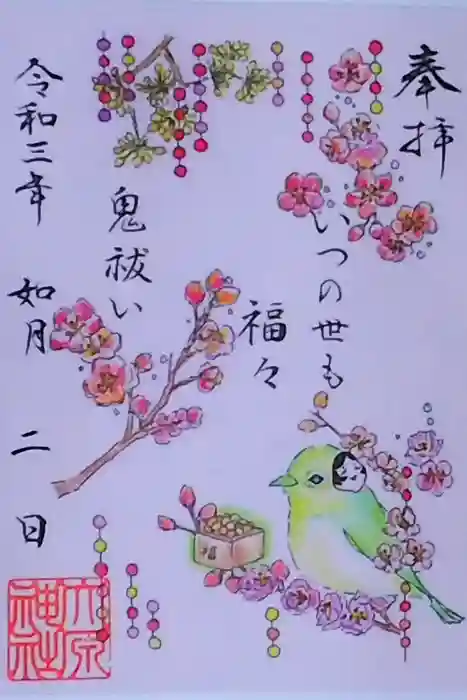 奉拝
いつの世も
福々
鬼祓い
令和三年 如月 二日
六原神社